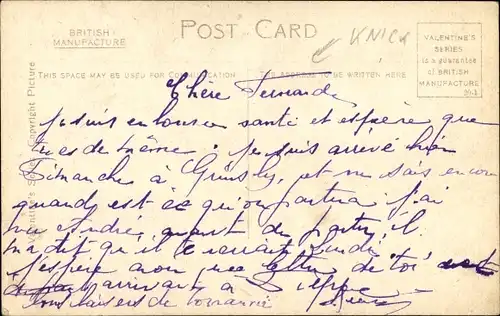 POST CARD
BRITISH
MANUFACTURE
KNICK
VALENTINE'S
SERIES
is a guarantee
of BRITISH
MANUFACTURE
THIS SPACE MAY BE USED FOR COMMUNICATION
THE ADDRESS TO BE WRITTEN HERE
Valentine's Series Copyright Picture
Chère Fernande
Je suis en bonne santé et espère que
tu es de même. Je suis arrivé hier
Dimanche à Grimsby, et ne sais encore
quand est ce qu'on partira. J'ai
vu André avant de partir, il
m'a dit qu'il te verrait Lundi
J'espère avoir une lettre de toi
arrivant à Dieppe
bons baisers de